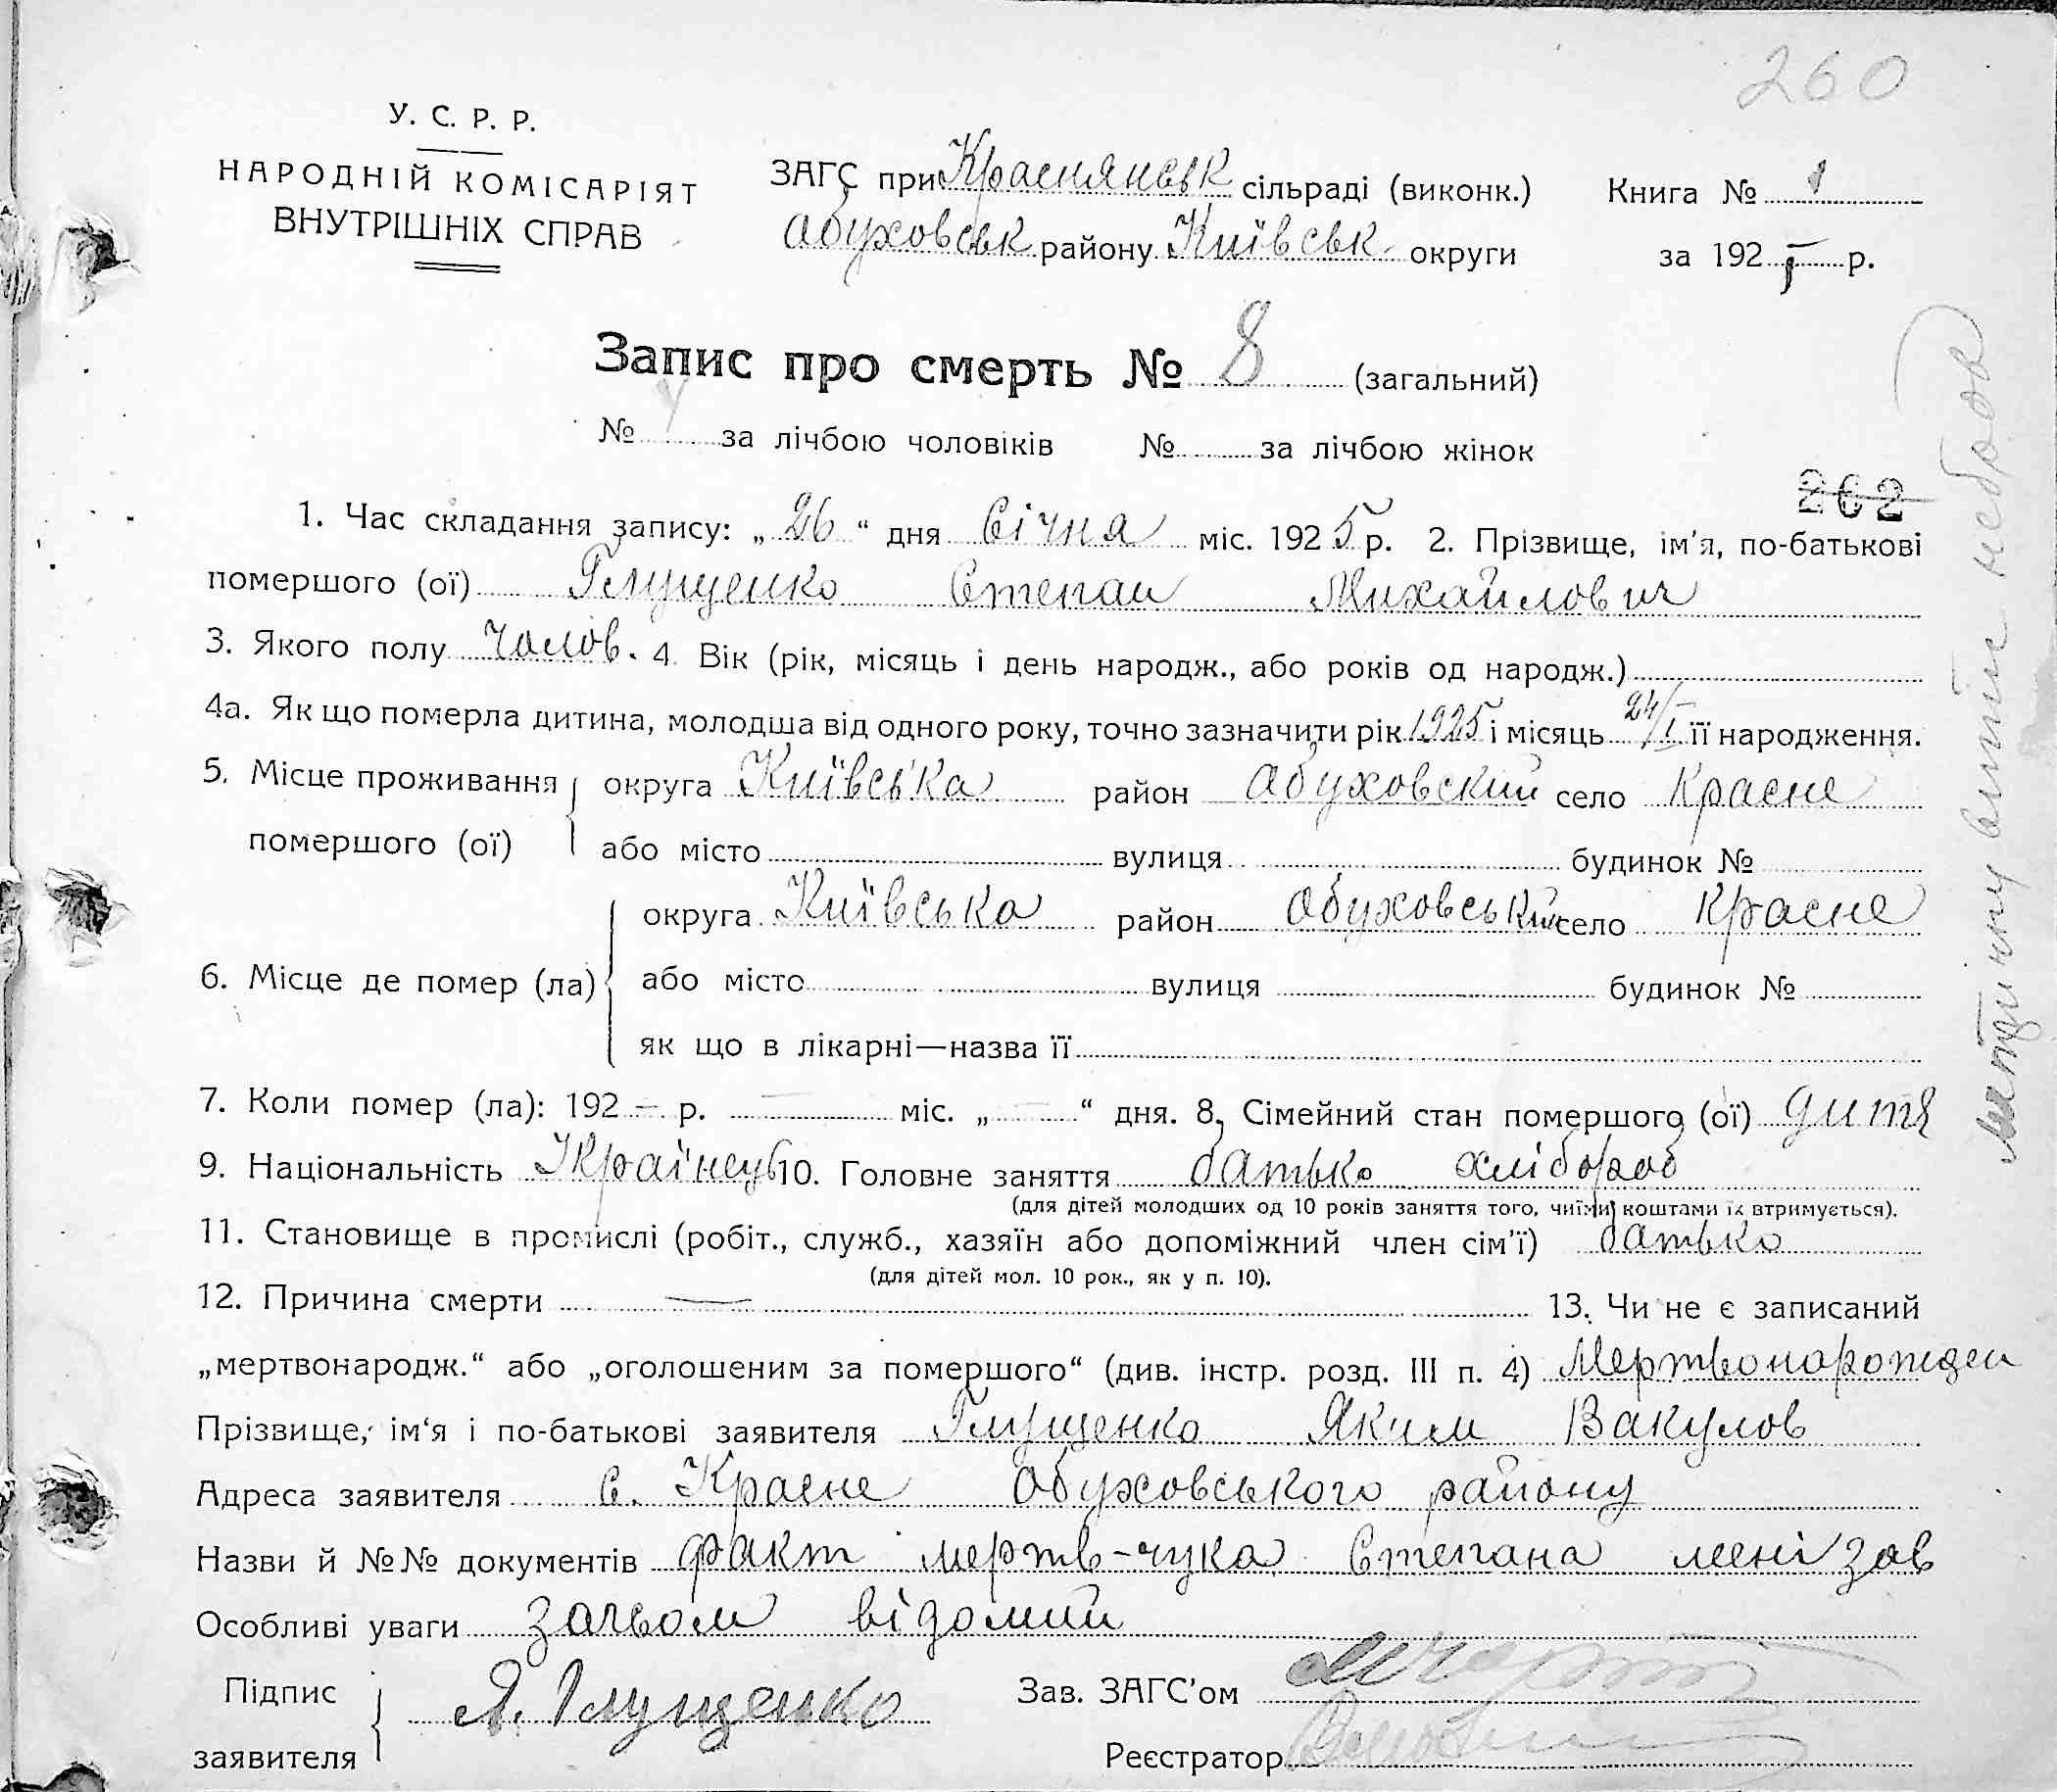 260
У. С. Р. Р.
НАРОДНІЙ КОМІСАРІЯТ
ВНУТРІШНІХ СПРАВ
ЗАГС при Краснянськ сільраді (виконк.) Книга № 1
Обуховськ району Київськ округи за 1925 р.
Запис про смерть № 8 (загальний)
№ 4 за лічбою чоловіків № за лічбою жінок
262
1. Час складання запису: „26“ дня Січня міс. 1925 р. 2. Прізвище, ім'я, по-батькові
помершого (ої) Глущенко Степан Михайлович
3. Якого полу Чолов. 4. Вік (рік, місяць і день народж., або років од народж.)
4а. Як що померла дитина, молодша від одного року, точно зазначити рік 1925 і місяць 24/I її народження.
5. Місце проживання округа Київська район Обуховский село Красне
помершого (ої) або місто вулиця будинок №
округа Київська район Обуховський село Красне
6. Місце де помер (ла) або місто вулиця будинок №
як що в лікарні—назва її
7. Коли помер (ла): 192 — р. — міс. „ — “ дня. 8. Сімейний стан помершого (ої) дитя
9. Національність Українець 10. Головне заняття батько хлібороб
(для дітей молодших од 10 років заняття того, чиїми коштами їх втримується).
11. Становище в промислі (робіт., служб., хазяїн або допоміжний член сім'ї) батько
(для дітей мол. 10 рок., як у п. 10).
12. Причина смерти — 13. Чи не є записаний
„мертвонародж.“ або „оголошеним за помершого“ (див. інстр. розд. III п. 4) Мертвонарожден
Прізвище, ім‘я і по-батькові заявителя Глущенко Яким Вакулов
Адреса заявителя с. Красне Обуховського району
Назви й №№ документів факт мертв-чука Степана мені зав
Особливі уваги загсом відомий
Підпис
заявителя Я. Глущенко
Зав. ЗАГС'ом
Реєстратор